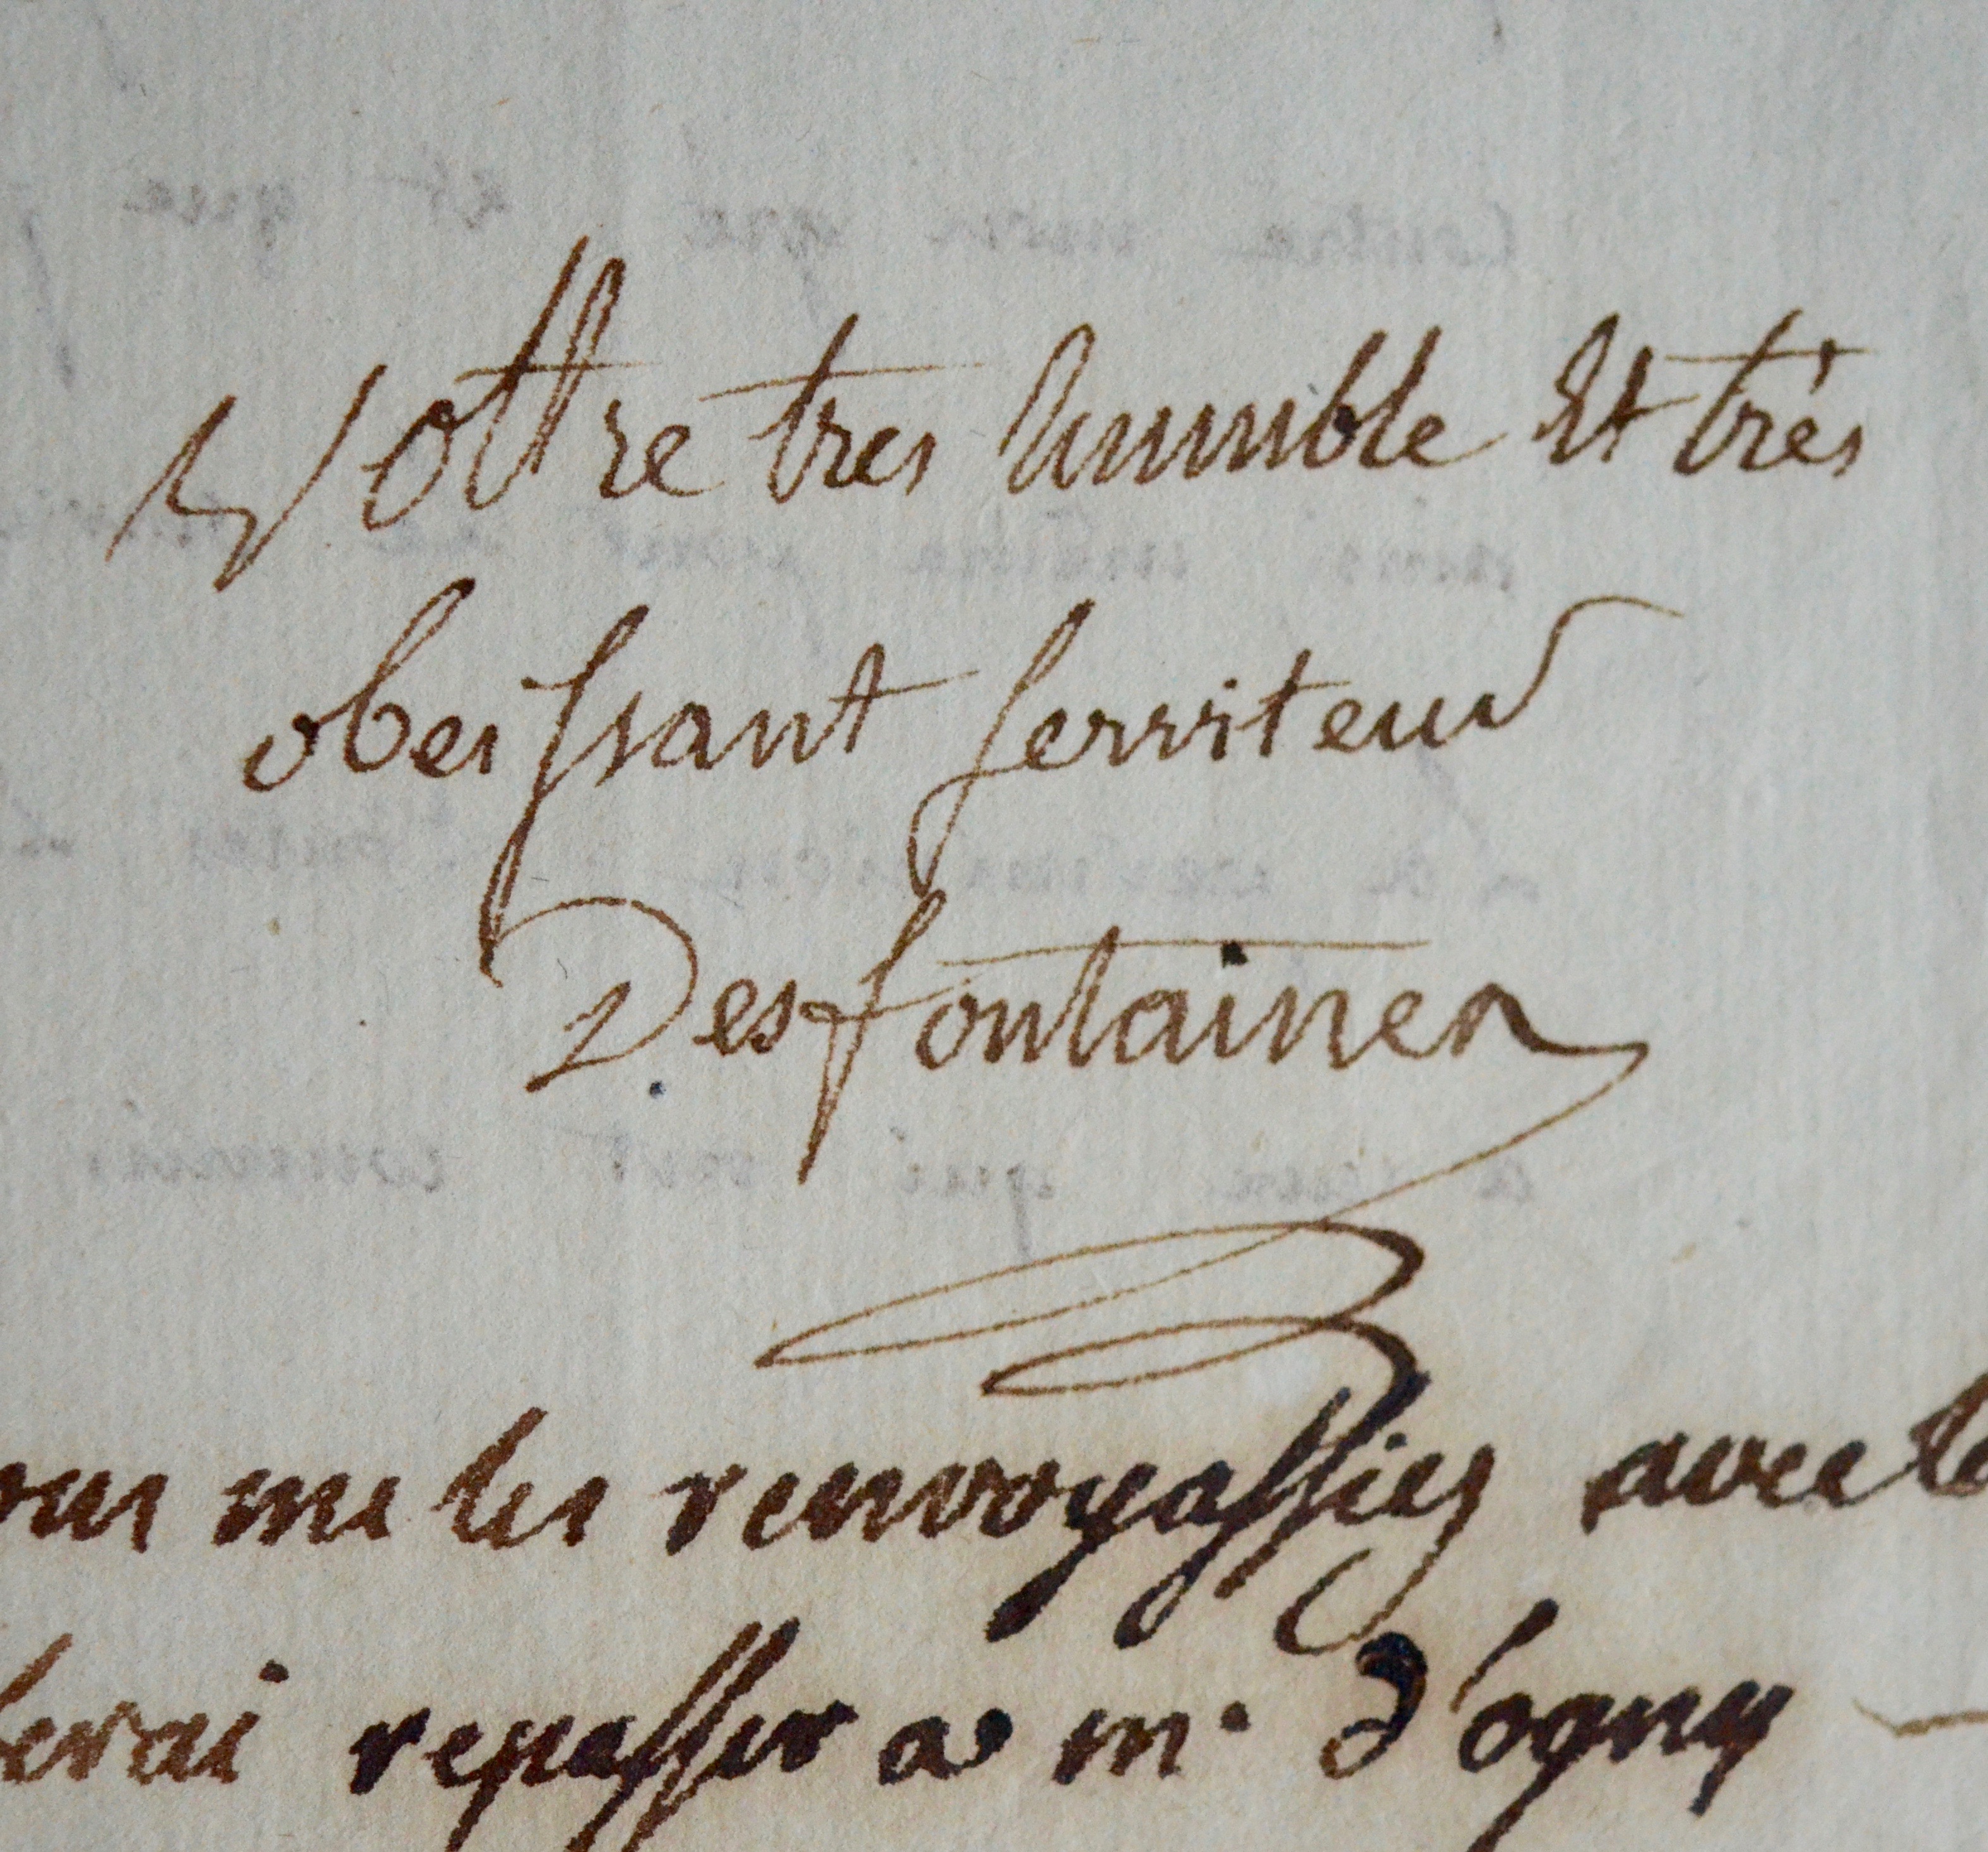 Vottre tres humble Et très
obeissant serviteur
Desfontaines
me les renvoyassiez avec
repasser a m. d'ogny